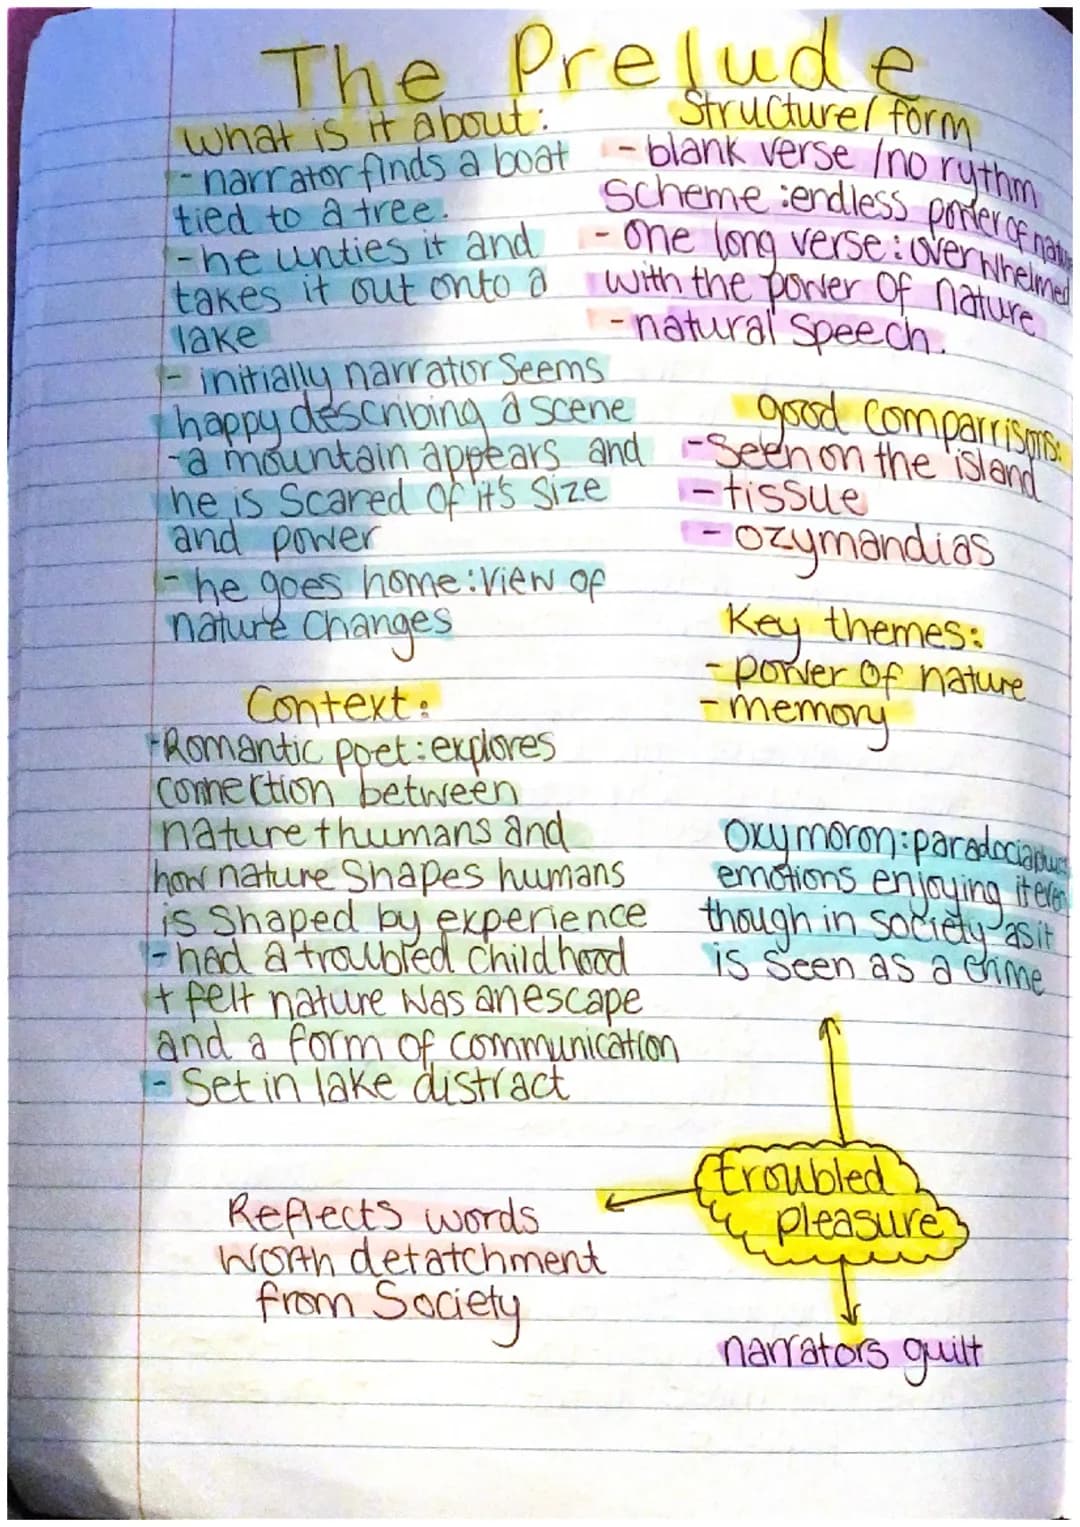 The Prelude
What is it about:
- narrator finds a boat
tied to a tree.
- he unties it and
takes it out onto a
lake
- initially narrator seems
happy describing a scene
- a mountain appears and
he is scared of it's size
and power
- he goes home: view of
nature changes
Context:
- Romantic poet: explores
connection between
nature + humans and
how nature shapes humans
is shaped by experience
- had a troubled childhood
+ felt nature was an escape
and a form of communication
- Set in lake distract
Structure/form
- blank verse /no rythm
scheme: endless power of
- one long verse: overwhelmed
with the power of nature
- natural speech.
good comparrisons:
- Seen on the island
- tissue
- ozymandias
Key themes:
- power of nature
- memory
Oxymoron:
emotions enjoying it even
though in society as it
is seen as a crime
troubled
pleasure
Reflects words
worth detatchment
from Society
narrators guilt